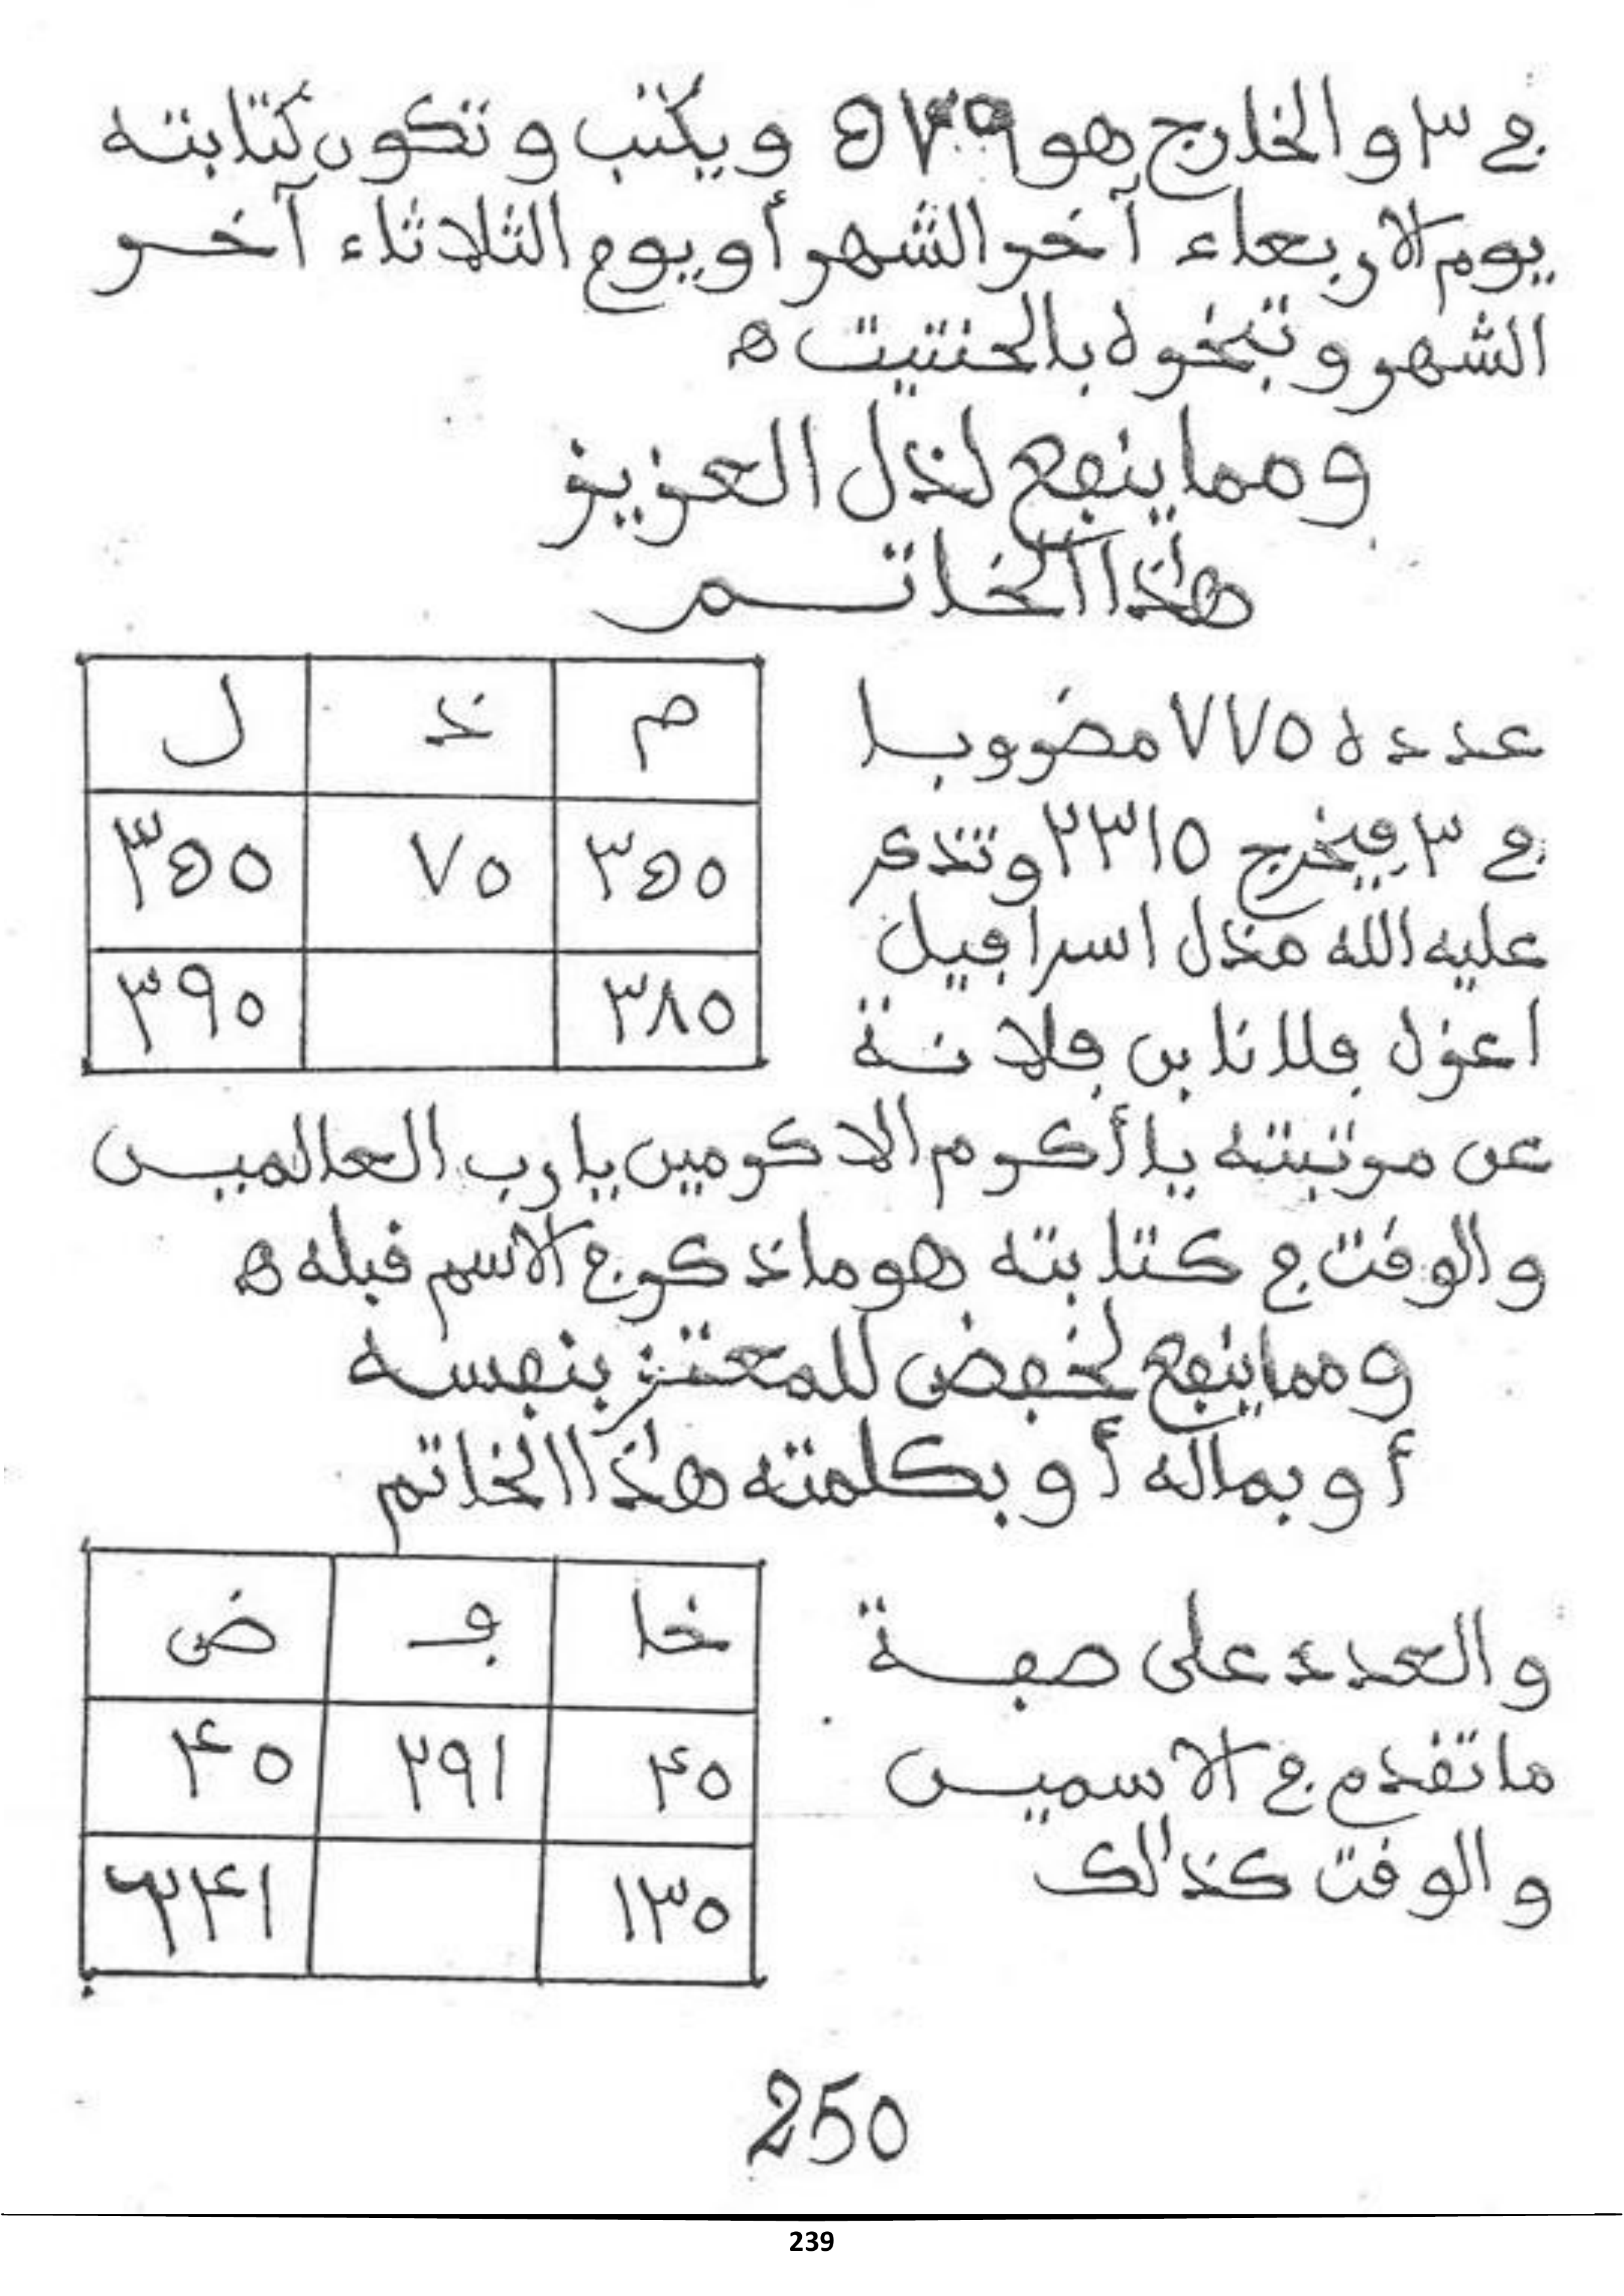 في ٣ والخارج هو ويكتب وتكون كتابته
يوم الاربعاء آخر الشهر أو يوم الثلاثاء آخر
الشهر وتبخره بالحنتيت ه
ومما ينفع لذل العزيز
هذا الخاتم
م ذ ل
٣٤٥ ٧٥ ٣٤٥
٣٨٥ ٣٩٠
عدده ٧٧٥ مضروبا
في ٣ فيخرج ٢٣١٥ وتذكر
عليه الله مذل اسرافيل
اعزل فلانا بن فلانة
عن مرتبته يا أكرم الاكرمين يا رب العالمين
والوقت في كتابته هو ما ذكر في الاسم قبله ه
ومما ينفع لخفض للمعتز بنفسه
أو بماله أو بكلمته هذا الخاتم
خا ف ض
٤٥ ٢٩١ ٤٥
١٣٥ ٢٤١
والعدد على صفة
ما تقدم في الاسمين
والوقت كذلك
250
239